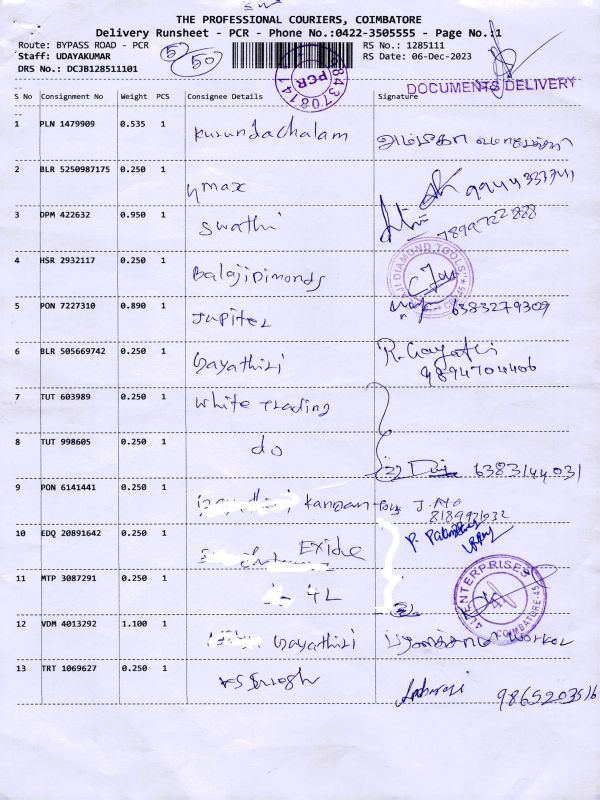 THE PROFESSIONAL COURIERS, COIMBATORE
Delivery Runsheet - PCR - Phone No.:0422-3505555 - Page No.:1
Route: BYPASS ROAD - PCR RS No.: 1285111
Staff: UDAYAKUMAR RS Date: 06-Dec-2023
DRS No.: DCJB128511101
50
PCR
DOCUMENTS DELIVERY
S No Consignment No Weight PCS Consignee Details Signature
1 PLN 1479909 0.535 1 Kurundachalam
2 BLR 5250987175 0.250 1 ymax
3 DPM 422632 0.950 1 Swathi
4 HSR 2932117 0.250 1 BalajiDimonds
DIAMOND TOOLS
5 PON 7227310 0.890 1 Jupiter 6383279309
6 BLR 505669742 0.250 1 Gayathiri R. Gayathri
9894704406
7 TUT 603989 0.250 1 White Trading
8 TUT 998605 0.250 1 do 6383144031
9 PON 6141441 0.250 1 Kannan
10 EDQ 20891642 0.250 1 Exide
11 MTP 3087291 0.250 1 4L
ENTERPRISES
COIMBATORE-45
12 VDM 4013292 1.100 1 Gayathiri worker
13 TRT 1069627 0.250 1 9865203516